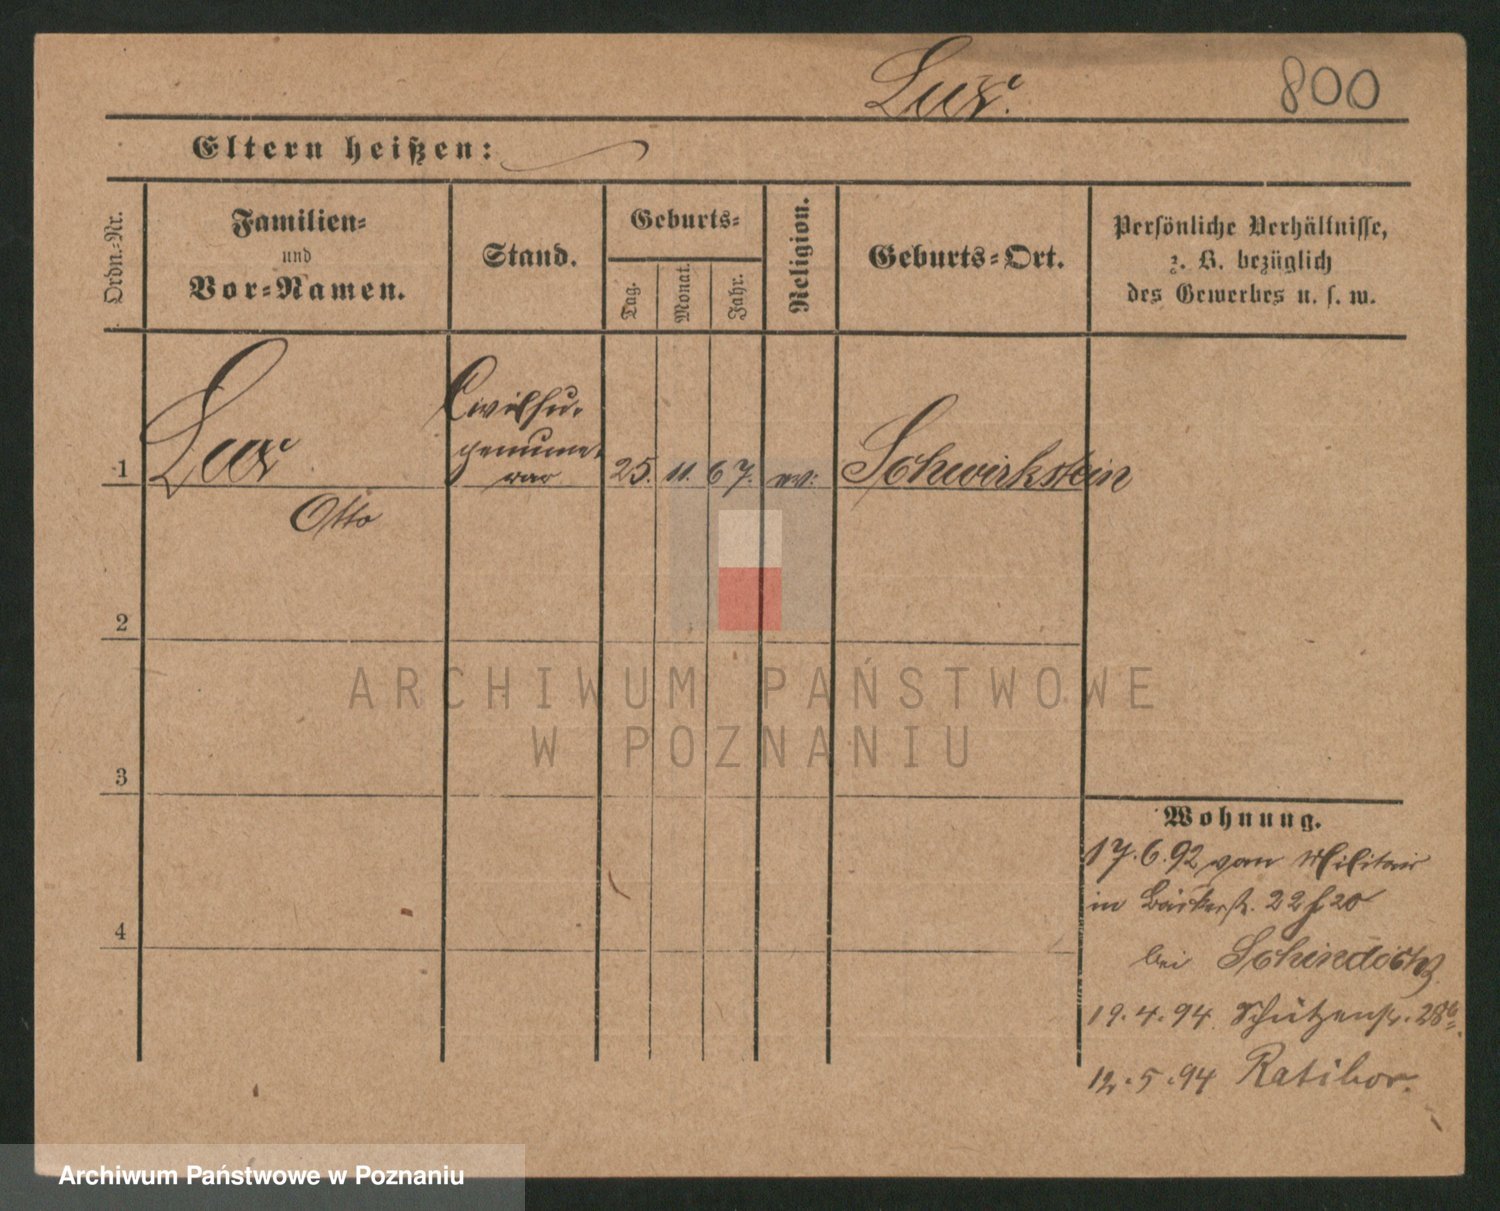 Lux.
800
Eltern heißen:
Ordn.-Nr.
Familien-
und
Vor-Namen.
Stand.
Geburts-
Tag.
Monat.
Jahr.
Religion.
Geburts-Ort.
Persönliche Verhältnisse,
z. B. bezüglich
des Gewerbes u. s. w.
1
Lux
Otto
Civilsu-
pernume-
rar
25.
11.
67.
ev:
Schwirkstein
2
3
4
Wohnung.
17.6.92 vom Militair
in Bäckerstr. 22
bei
19.4.94. Schützenstr. 28
12.5.94 Ratibor.
ARCHIWUM PAŃSTWOWE
W POZNANIU
Archiwum Państwowe w Poznaniu